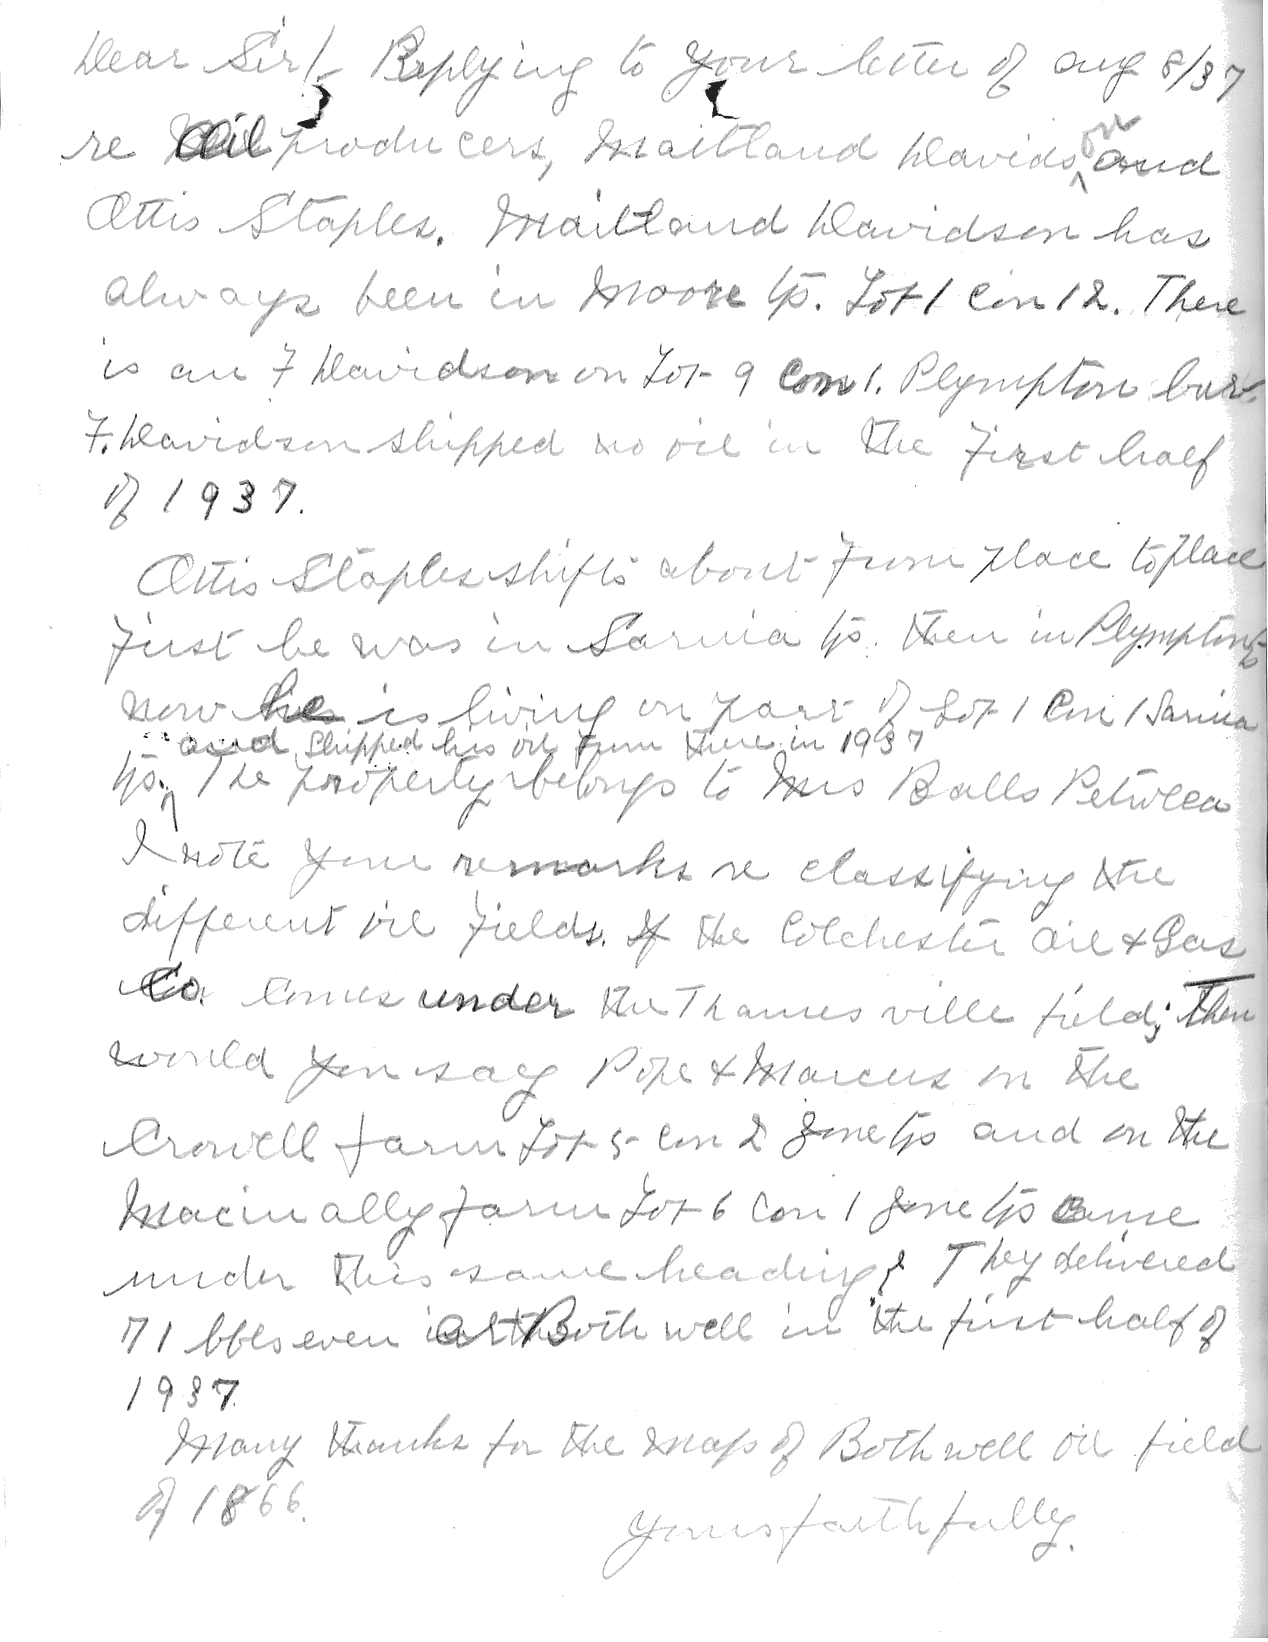 Dear Sir/- Replying to your letter of Aug 8/37
re Oil producers, Maitland Davidson and
Ottis Staples. Maitland Davidson has
always been in Moore tp. Lot 1 Con 12. There
is an F Davidson on Lot 9 Con 1. Plympton but
F. Davidson shipped no oil in the first half
of 1937.
Ottis Staples shifts about from place to place
first he was in Sarnia tp. then in Plympton tp
now he is living on part of Lot 1 Con 1 Sarnia
and shipped his oil from there in 1937
tp. The property belongs to Mrs Balls Petrolea
I note your remarks re classifying the
different oil fields. If the Colchester Oil & Gas
Co. comes under the Thamesville field; then
would you say Pope & Marcus on the
Crowell farm Lot 5 Con 2 Zone tp and on the
Macinally farm Lot 6 Con 1 Zone tp come
under this same heading? They delivered
71 bbls even at Bothwell in the first half of
1937.
Many thanks for the map of Bothwell oil field
of 1866.
Yours faithfully.